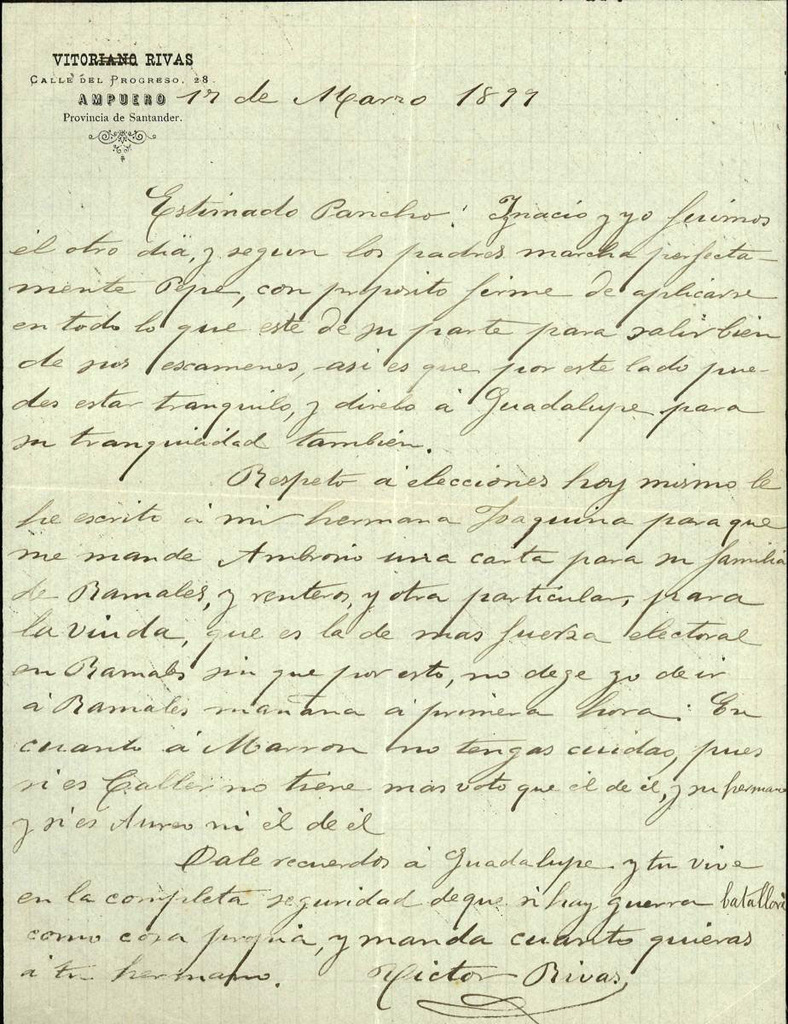 VITORIANO RIVAS
CALLE DEL PROGRESO, 28.
AMPUERO
Provincia de Santander.
17 de Marzo 1899
Estimado Pancho: Ignacio y yo fuimos
el otro dia, y segun los padres marcha perfecta-
mente Pepe, con proposito firme de aplicarse
en todo lo que esté de su parte para salir bien
de sus escamenes, asi es que por este lado pue-
des estar tranquilo, y direlo á Guadalupe para
su tranquilidad también.
Respeto á elecciones hoy mismo le
he escrito á mi hermana Joaquina para que
me mande Ambrosio una carta para su familia
de Ramales, y renteros, y otra particular, para
la viuda, que es la de mas fuersa electoral
en Ramales sin que por esto, no dege yo de ir
á Ramales mañana á primera hora: En
cuanto á Marron no tengas cuidao, pues
si es no tiene mas voto que él de el, y su hermano
y si es Aureo ni él de él
Dale recuerdos á Guadalupe y tu vive
en la completa seguridad de que si hay guerra
como cosa propia, y manda cuanto quieras
á tu hermano. Victor Rivas